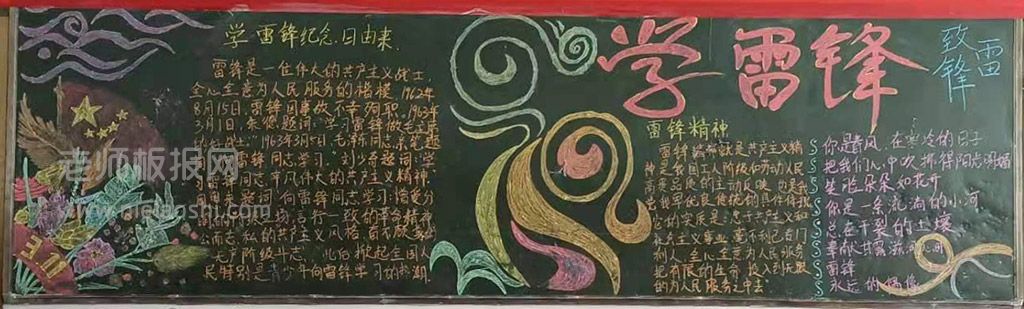 学雷锋纪念日由来
雷锋是一位伟大的共产主义战士,
全心全意为人民服务的楷模。1962年
8月15日,雷锋因事故不幸殉职。1963年
3月1日,朱德题词:"学习雷锋
"1963年3月5日,毛泽东同志亲笔题
雷锋同志学习。"刘少奇题词:"学
习雷锋同志平凡伟大的共产主义精神
向雷锋同志学习:憎爱分
言行一致的革命精神
而忘私的共产主义风格、奋不顾身
无产阶级斗志。"此后掀起全国人
民特别是青少年向雷锋学习的热潮
31
学雷锋
致雷锋
雷锋精神
雷锋精神就是共产主义精
神是我国工人阶级和劳动人民
高贵品质的生动反映,也是我
党我军优良传统的具体体现
它的实质是:忠于共产主义和
社会主义事业,毫不利己专门
利人,全心全意为人民服务
把有限的生命,投入到无限
的为人民服务之中去
你是春风,在寒冷的日子
把我们心中吹拂得阳光明媚
笑脸朵朵如花开
你是一条流淌的小河
总在干裂的土壤
奉献甘露滋润
雷锋
永远的偶像
老师板报网
laoshi.com